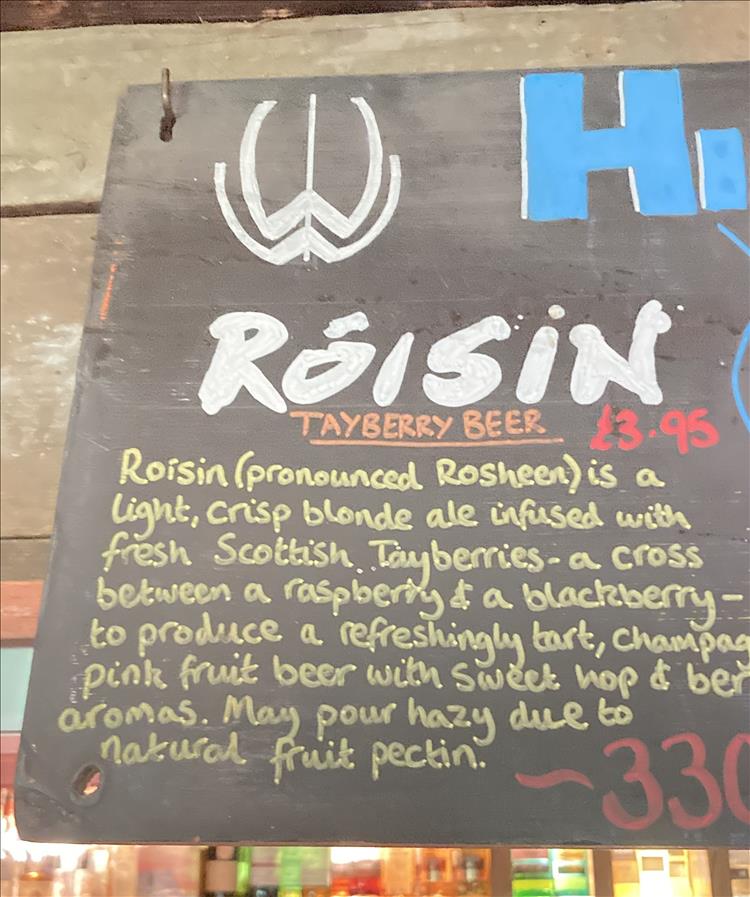 Hi
RÓISIN
TAYBERRY BEER £3.95
Roisin (pronounced Rosheen) is a
light, crisp blonde ale infused with
fresh Scottish Tayberries - a cross
between a raspberry & a blackberry -
to produce a refreshingly tart, champag
pink fruit beer with sweet hop & ber
aromas. May pour hazy due to
natural fruit pectin.
~330